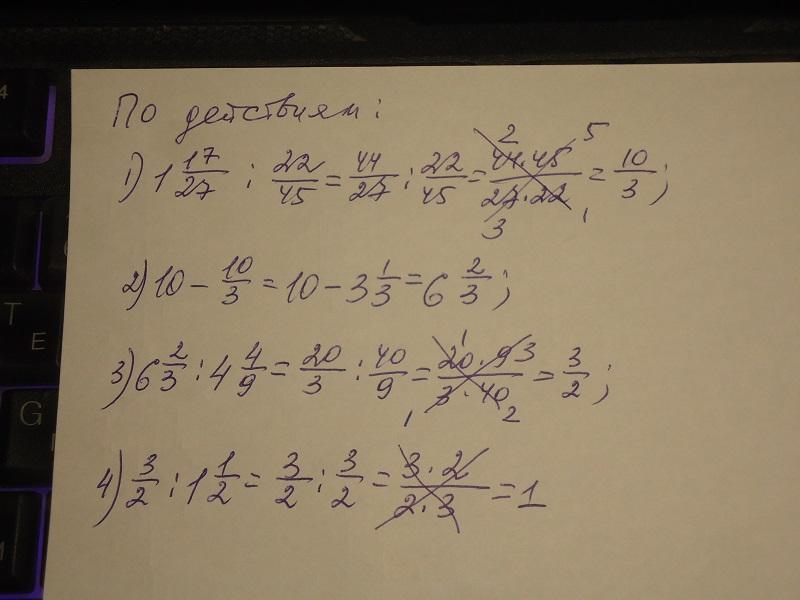 По действиям:
1) 1 17/27 : 22/45 = 44/27 : 22/45 = 44·45/27·22 = 10/3;
2) 10 - 10/3 = 10 - 3 1/3 = 6 2/3;
3) 6 2/3 : 4 4/9 = 20/3 : 40/9 = 20·9/3·40 = 3/2;
4) 3/2 : 1 1/2 = 3/2 : 3/2 = 3·2/2·3 = 1